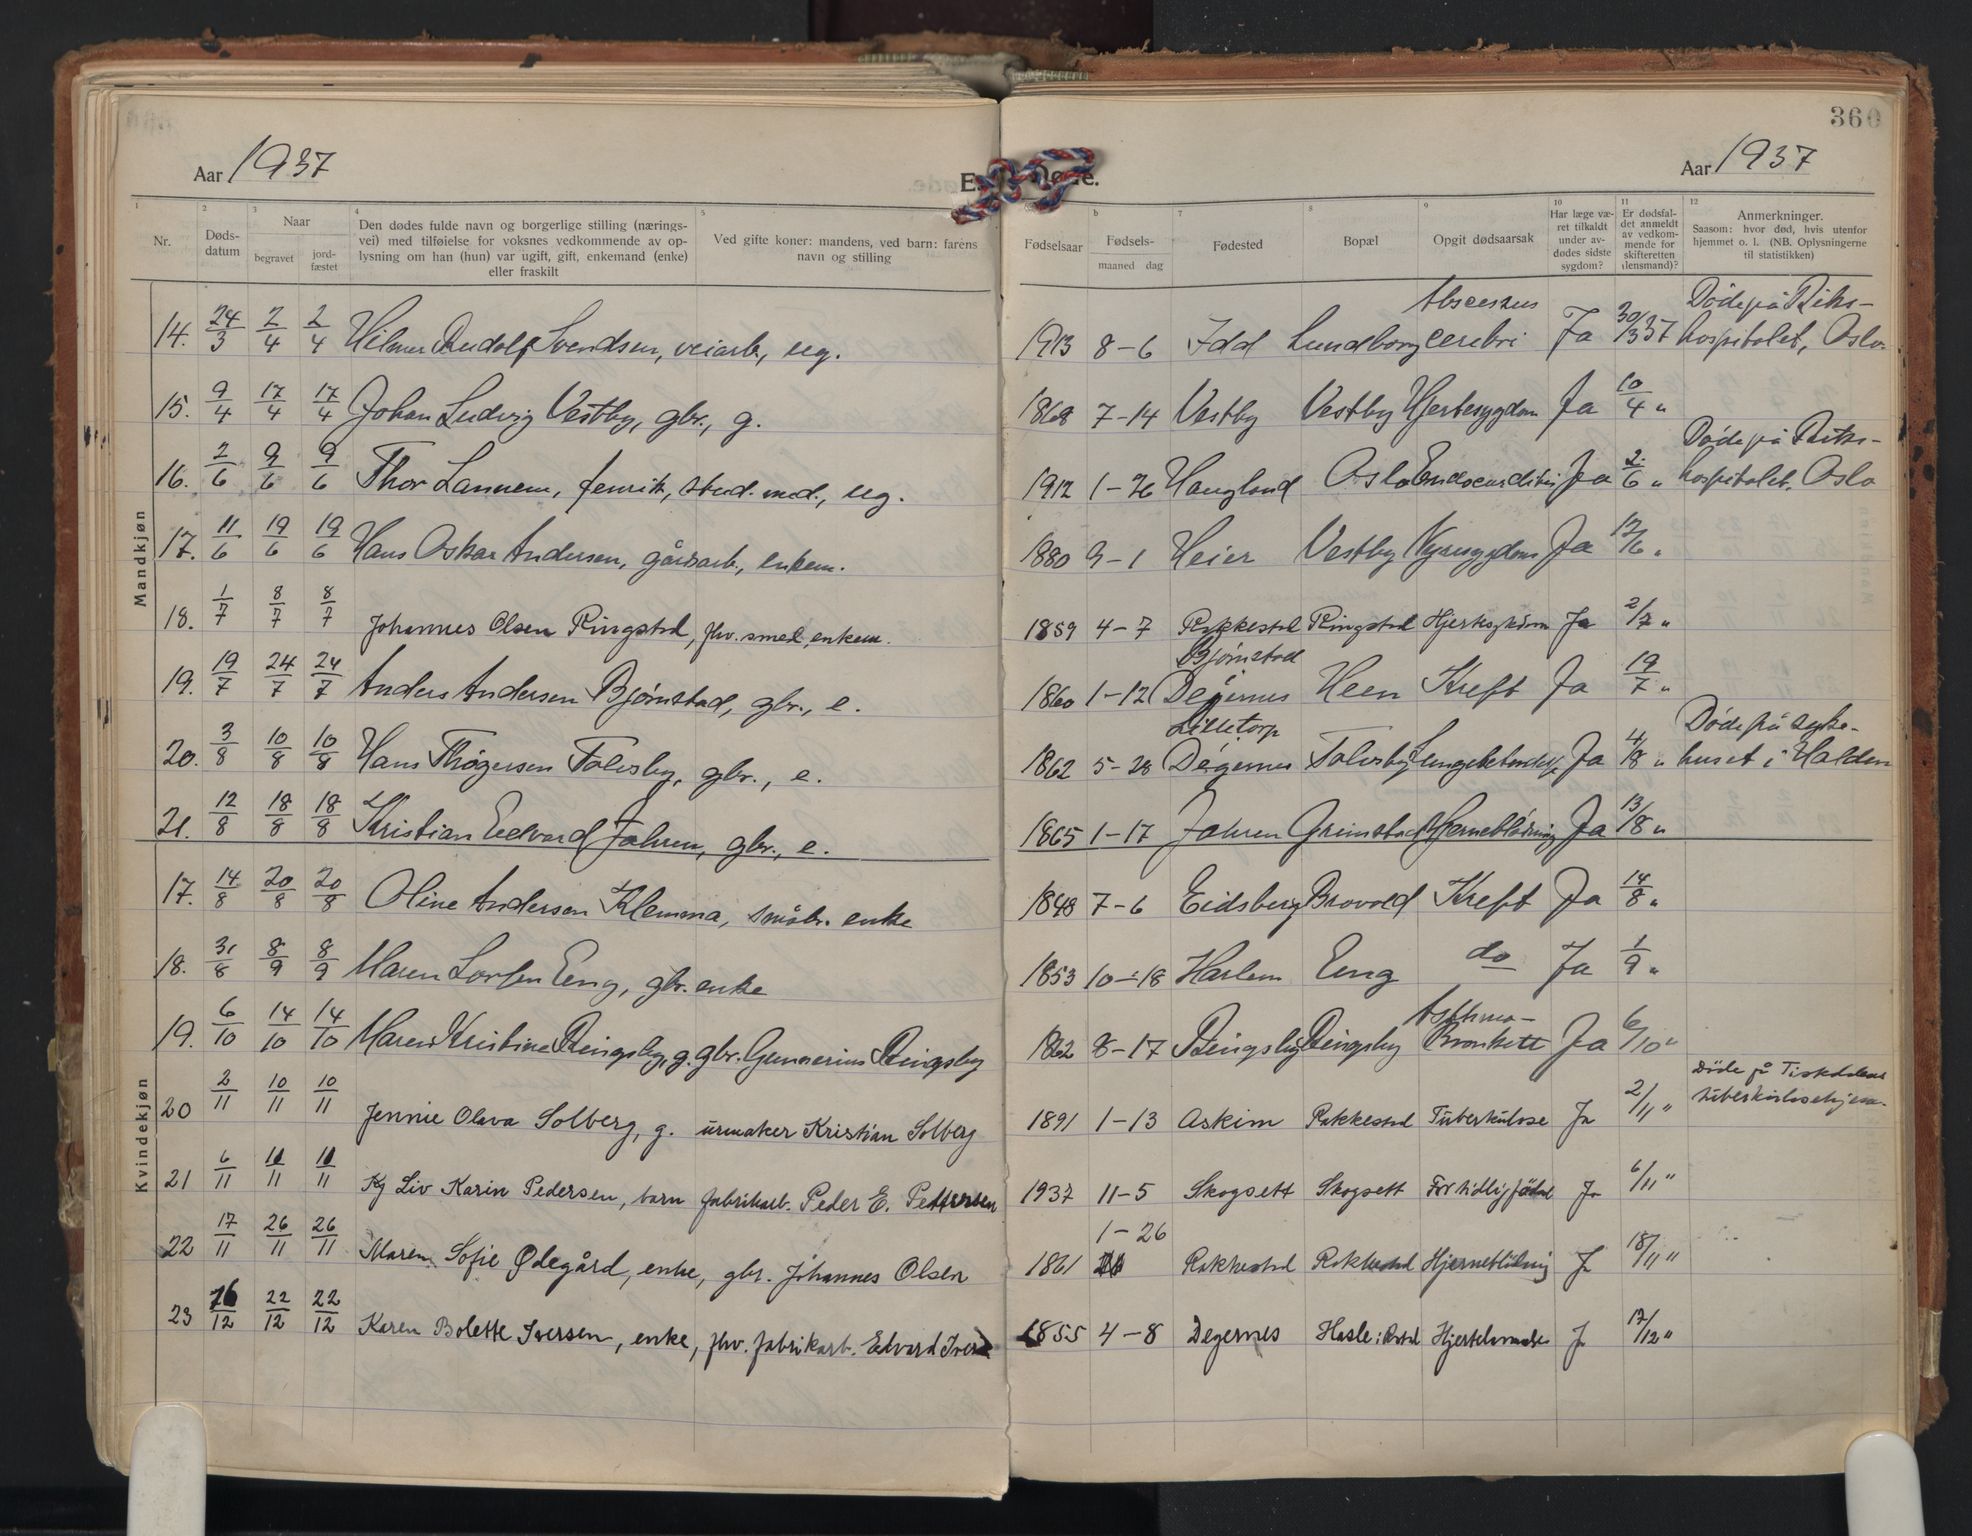 360
Aar 1937
Aar 1937
Døde.
1 2 3 4 5 b 7 8 9 10 11 12
Nr. Dødsdatum Naar begravet jordfæstet
Den dødes fulde navn og borgerlige stilling (næringsvei) med tilføielse for voksnes vedkommende av oplysning om han (hun) var ugift, gift, enkemand (enke) eller fraskilt
Ved gifte koner: mandens, ved barn: farens navn og stilling
Fødselsaar Fødsels- maaned dag Fødested Bopæl Opgit dødsaarsak
Har læge været tilkaldt under avdødes sidste sygdom?
Er dødsfaldet anmeldt av vedkommende for skifteretten (lensmand)?
Anmerkninger. Saasom: hvor død, hvis utenfor hjemmet o. l. (NB. Oplysningerne til statistikken)
Mandkjøn
14. 24/3 2/4 2/4 Hilmer Rudolf Svendsen, veiarb., ug. 1913 8-6 Idd Lundborg Abscessus cerebri Ja 30/3 37 Døde på Rikshospitalet, Oslo.
15. 9/4 17/4 17/4 Johan Ludvig Vestby, gbr., g. 1868 7-14 Vestby Vestby Hjertesygdom Ja 10/4 "
16. 2/6 9/6 9/6 Thor Lannem, fenrik, stud. med., ug. 1912 1-26 Haugland Oslo Endocarditis Ja 2/6 " Døde på Rikshospitalet, Oslo
17. 11/6 19/6 19/6 Hans Oskar Andersen, gårdsarb., enkem. 1880 9-1 Heier Vestby Nyresygdom Ja 12/6 "
18. 1/7 8/7 8/7 Johannes Olsen Ringstad, fhv. smed, enkem. 1859 4-7 Rakkestad Ringstad Hjertesykdom Ja 2/7 "
19. 19/7 24/7 24/7 Anders Andersen Bjørnstad, gbr., e. 1860 1-12 Bjørnstad Degernes Heen Kreft Ja 19/7 "
20. 3/8 10/8 10/8 Hans Thøgersen Tolvsby, gbr., e. 1862 5-28 Lilletorp Degernes Tolvsby Lungebetendelse Ja 4/8 " Døde på sykehuset i Halden
21. 12/8 18/8 18/8 Kristian Edvard Jahren, gbr., e. 1865 1-17 Jahren Grimstad Hjerneblødning Ja 13/8 "
Kvindekjøn
17. 14/8 20/8 20/8 Oline Andersen Klemma, småbr. enke 1848 7-6 Eidsberg Brovold Kreft Ja 14/8 "
18. 31/8 8/9 8/9 Maren Larsen Eng, gbr. enke 1853 10-18 Harlem Eng do Ja 1/9 "
19. 6/10 14/10 14/10 Maren Kristine Ringsby, g. gbr. Gunnerius Ringsby 1862 8-17 Ringsby Ringsby Asthma-Bronkitt Ja 6/10 "
20 2/11 10/11 10/11 Jennie Olava Solberg, g. urmaker Kristian Solberg 1891 1-13 Askim Rakkestad Tuberkulose Ja 2/11 " Døde på tuberkulosehjem.
21 6/11 11/11 11/11 Liv Karin Pedersen, barn fabrikarb. Peder E. Pettersen 1937 11-5 Skogsett Skogsett For tidlig fødsel Ja 6/11 "
22 17/11 26/11 26/11 Maren Sofie Ødegård, enke, gbr. Johannes Olsen 1861 1-26 Rakkestad Rakkestad Hjerneblødning Ja 18/11 "
23 16/12 22/12 22/12 Karen Bolette Iversen, enke, fhv. fabrikarb. Edvard Iversen 1855 4-8 Degernes Hasle i Rakkestad Ja 17/12 "